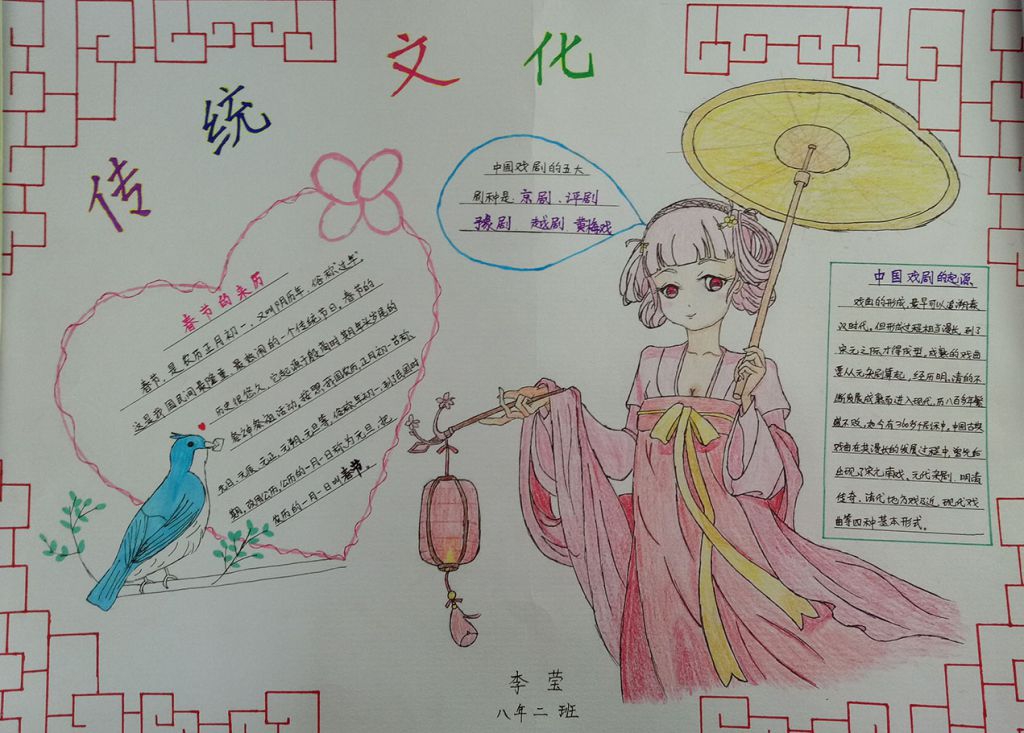 传统文化
中国戏剧的五大
剧种是 京剧、评剧
豫剧 越剧 黄梅戏
春节的来历
春节,是农历正月初一,又叫阴历年,俗称"过年",
这是我国民间最隆重、最热闹的一个传统节日。春节的
历史很悠久,它起源于殷商时期年头岁尾的
祭神祭祖活动,按照我国农历,正月初一古称
元日、元辰、元正、元朔、元旦等,俗称年初一,到了民国时
期,改用公历,公历的一月一日称为元旦,把
农历的一月一日叫春节。
中国戏剧的起源
戏曲的形成,最早可以追溯秦
汉时代。但形成过程相当漫长,到了
宋元之际才得成型。成熟的戏曲
要从元杂剧算起,经历明、清的不
断发展成熟而进入现代,历八百多年繁
盛不败,如今有360多个种。中国古典
戏曲在其漫长的发展过程中,曾先后
出现了宋元南戏、元代杂剧、明清
传奇、清代地方戏及近、现代戏
曲等四种基本形式。
李莹
八年二班